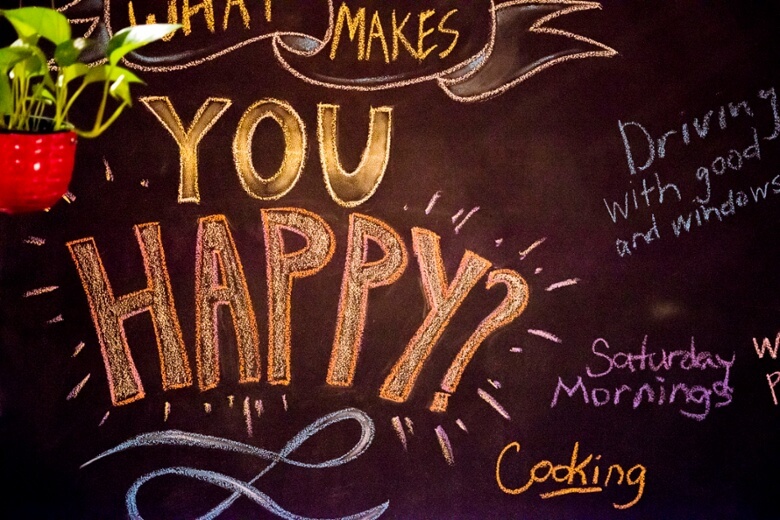 WHAT
MAKES
YOU
HAPPY?
Driving
with good
and windows
Saturday
Mornings
Cooking